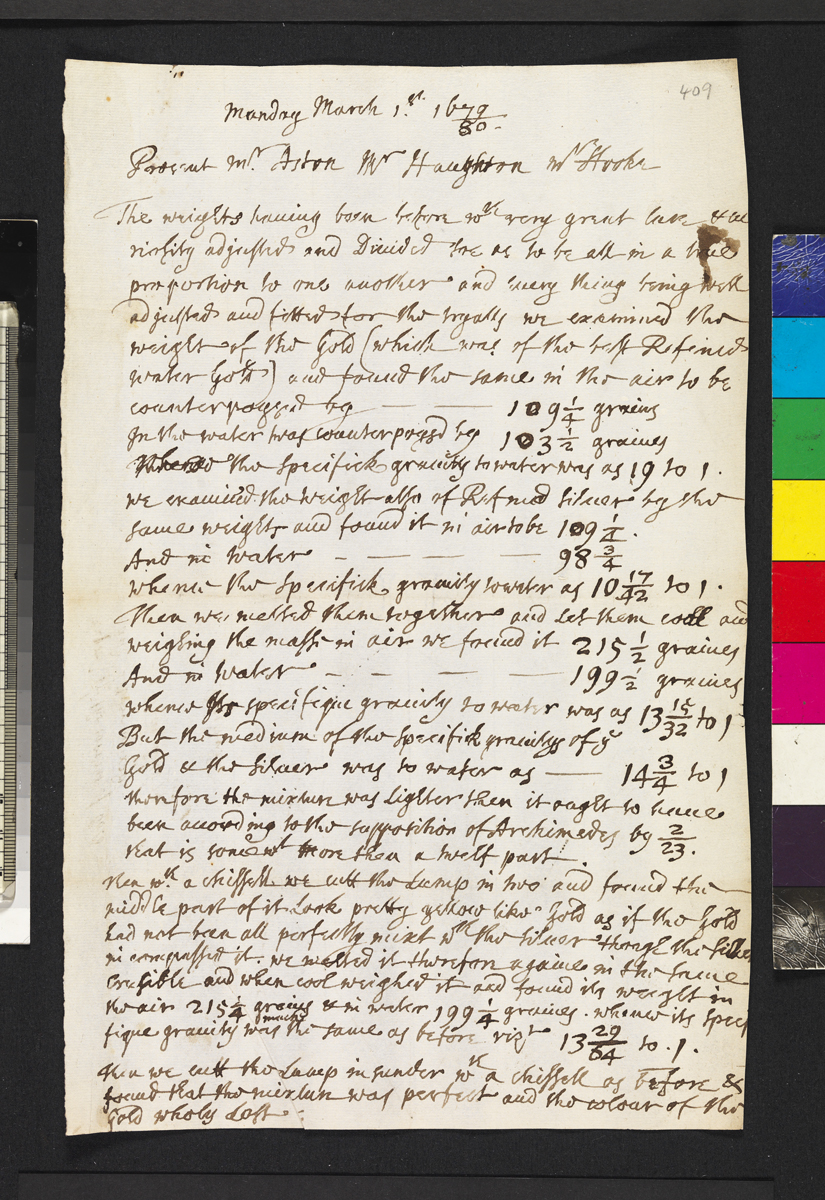 409
Munday March 1.st 1679/80.
Present Mr. Aston Mr Haughton Mr Hooke
The weights having been before wth very great care & cu
riosity adjusted and Divided soe as to be all in a true
proportion to one another and every thing being well
adjusted and fitted for the tryalls we examined the
weight of the Gold (which was of the best Refined
water Gold) and found the same in the air to be
counterpoyzed by — — — 109 1/4 grains
In the water twas counterpoysd by 103 1/2 graines
the specifick gravity to water was as 19 to 1.
we examined the weight also of Refined Silver by the
same weights and found it in air to be 109 1/4.
And in water — — — — 98 3/4
whence the specifick gravity to water as 10 17/42 to 1.
Then we melted them together and let them cool and
weighing the masse in air we found it 215 1/2 graines
And in water — — — — 199 1/2 graines
whence its specifique gravity to water was as 13 15/32 to 1
But the medium of the specifick gravitys of ye
Gold & the Silver was to water as — 14 3/4 to 1
therefore the mixture was Lighter then it ought to have
been according to the supposition of Archimedes by 2/23.
that is somewt more then a twelf part.
then wth a chissell we cutt the Lump in two and found the
middle part of it Look pretty yellow like Gold as if the Gold
had not been all perfectly mixt wth the silver though the silver
incompassed it. we melted it therefore againe in the same
crusible and when cool weighed it and found its weight in
the air 215 1/4 grains & in water 199 1/4 graines. whence its speci
fique gravity was much the same as before vizt 13 29/64 to .1.
then we cutt the Lump in sunder wth a chissell as before &
found that the mixture was perfect and the colour of the
Gold wholy Lost